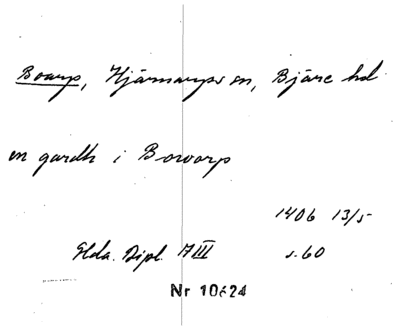 Boarp, Hjärnarps sn, Bjäre hd
en gardh i Bovarp
1406 13/5
Hda. Dipl. A III s. 60
Nr 10624